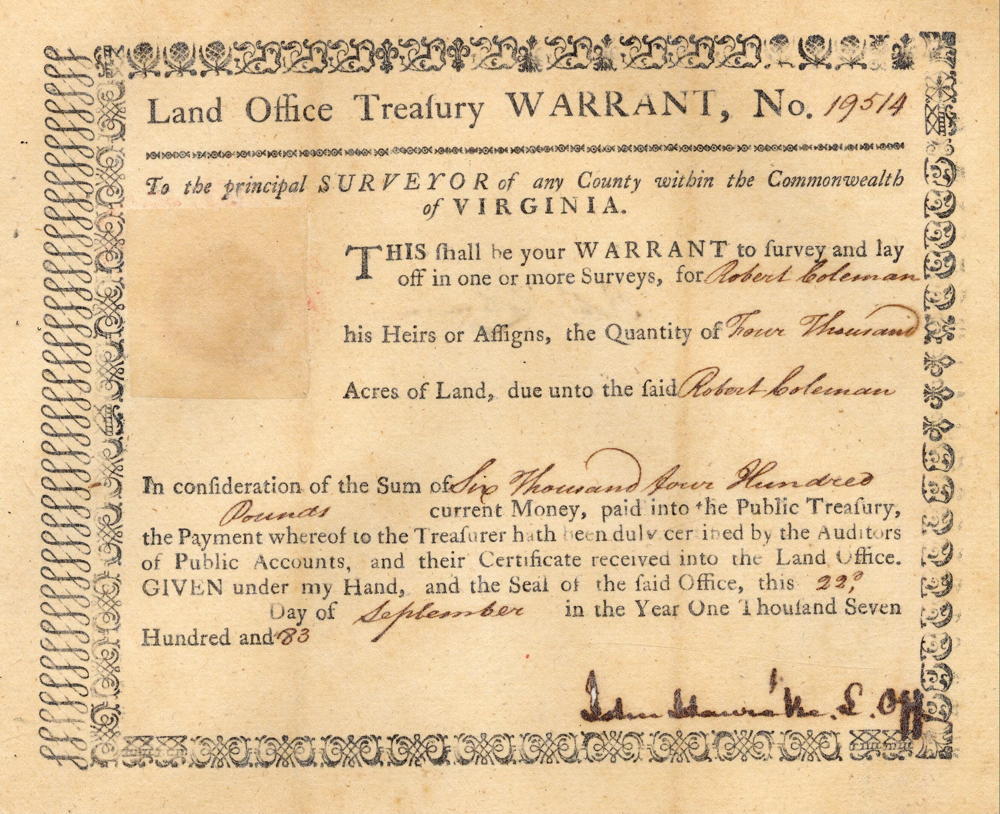 Land Office Treaſury WARRANT, No. 19514
To the principal SURVEYOR of any County within the Commonwealth
of VIRGINIA.
THIS ſhall be your WARRANT to ſurvey and lay
off in one or more Surveys, for Robert Coleman
his Heirs or Aſſigns, the Quantity of Four Thousand
Acres of Land, due unto the ſaid Robert Coleman
In conſideration of the Sum of Six Thousand four Hundred
Pounds current Money, paid into the Public Treaſury,
the Payment whereof to the Treaſurer hath been duly certified by the Auditors
of Public Accounts, and their Certificate received into the Land Office.
GIVEN under my Hand, and the Seal of the ſaid Office, this 22d
Day of September in the Year One Thouſand Seven
Hundred and 83
John L. Off